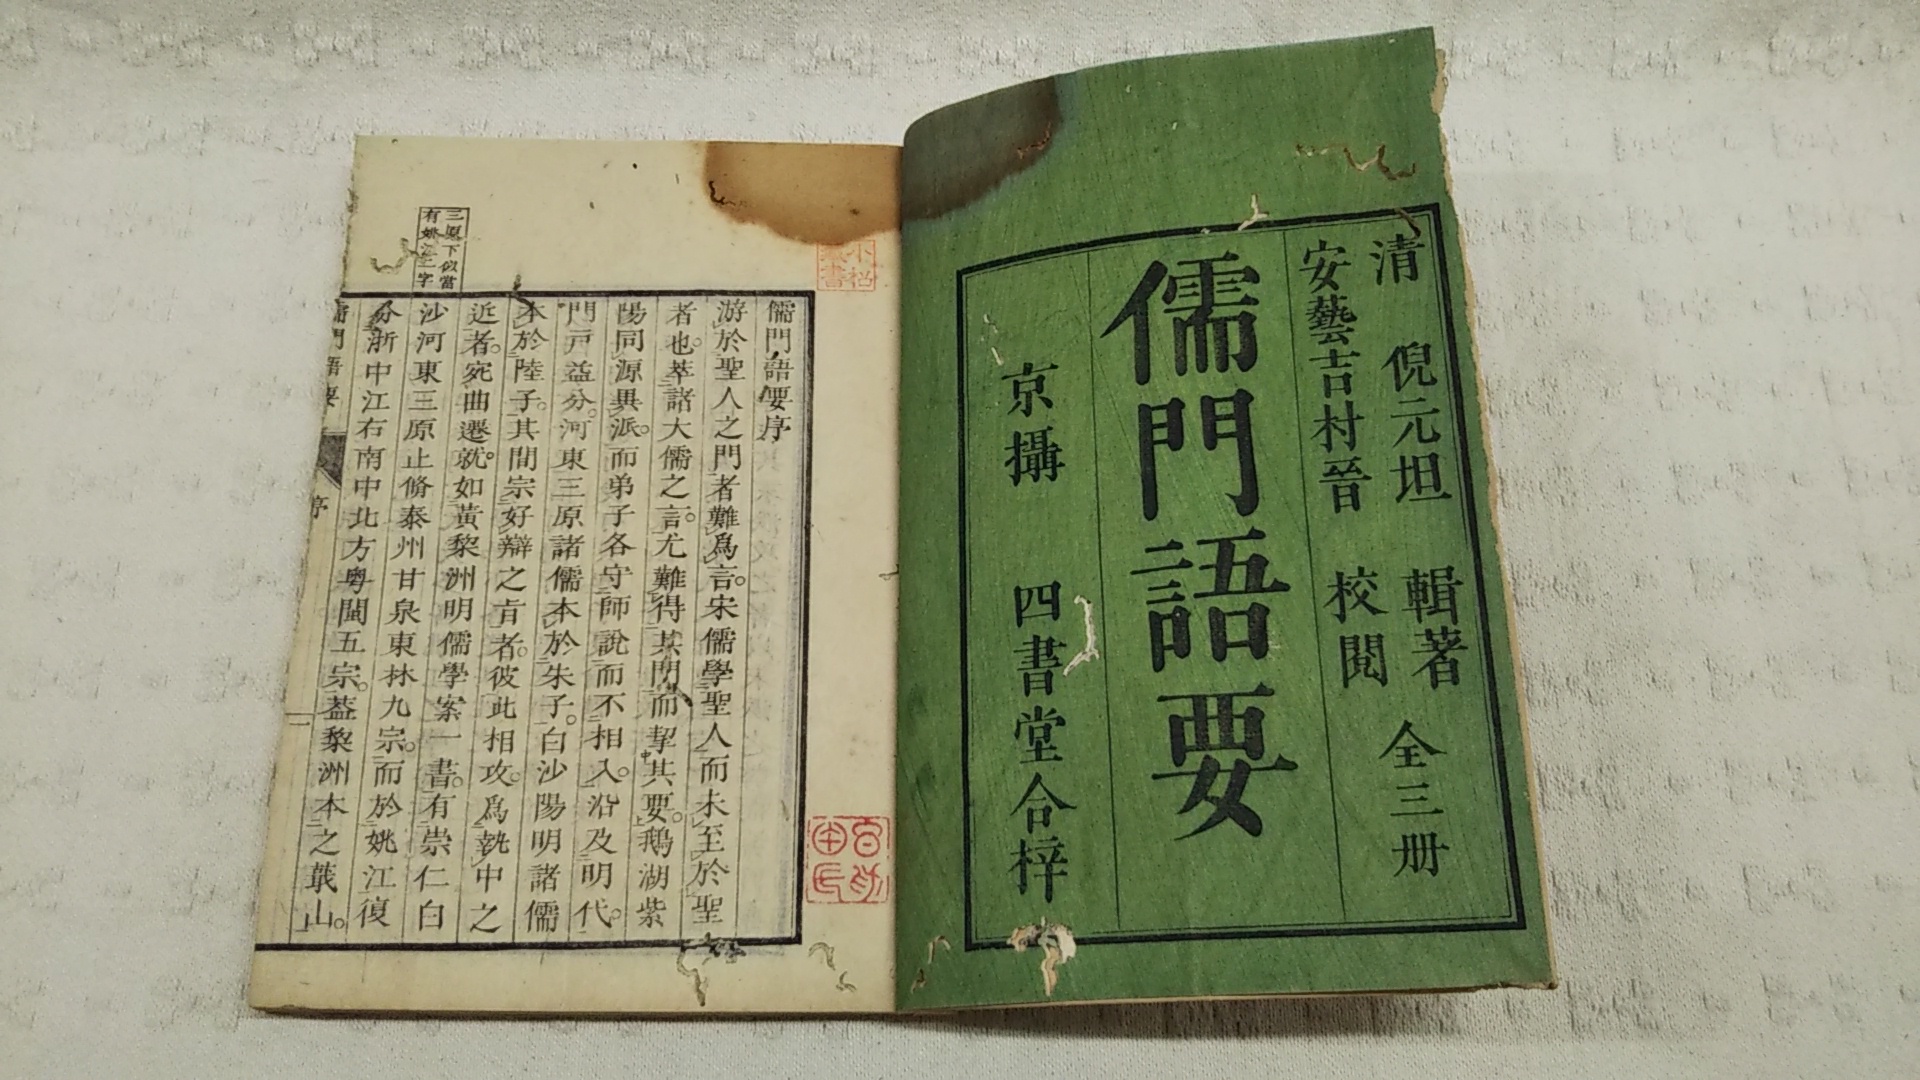 清 倪元坦 輯著 全三册
安藝吉村晉 校閲
儒門語要
京攝 四書堂合梓
三原下似當
有姚江二字
儒門語要序
游於聖人之門者難爲言。宋儒學聖人而未至於聖
者也。萃諸大儒之言。尤難得其門而挈其要。鵝湖紫
陽同源異派。而弟子各守師說而不相入。沿及明代。
門戸益分。河東三原諸儒本於朱子。白沙陽明諸儒
本於陸子。其間宗好辯之肯者。彼此相攻。爲執中之
近者。宛曲遷就。如黃黎洲明儒學案一書。有崇仁白
沙河東三原止脩泰州甘泉東林九宗。而於姚江復
分浙中江右南中北方粤閩五宗。葢黎洲本之蕺山。
儒門語要 序 一